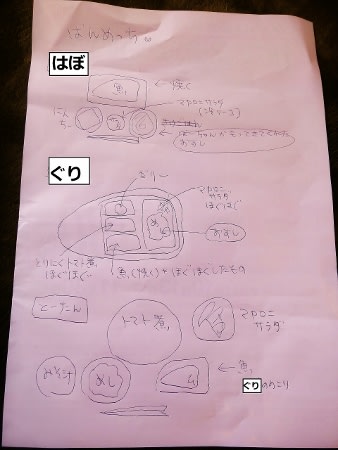 ばんめにゅー
はぼ
魚
← 焼く
マカロニサラダ
(ツナ、ソース)
にんじん
← ばーちゃんがもってきてくれた
おすし
ぐり
ぜりー
マカロニ
サラダ
ほぐほぐ
めし
おすし
とりにくトマト煮
ほぐほぐ
魚(焼く)+ほぐほぐしたもの
とーたん
トマト煮
マカロニ
サラダ
みそ汁
めし
← 魚
ぐり ののこり